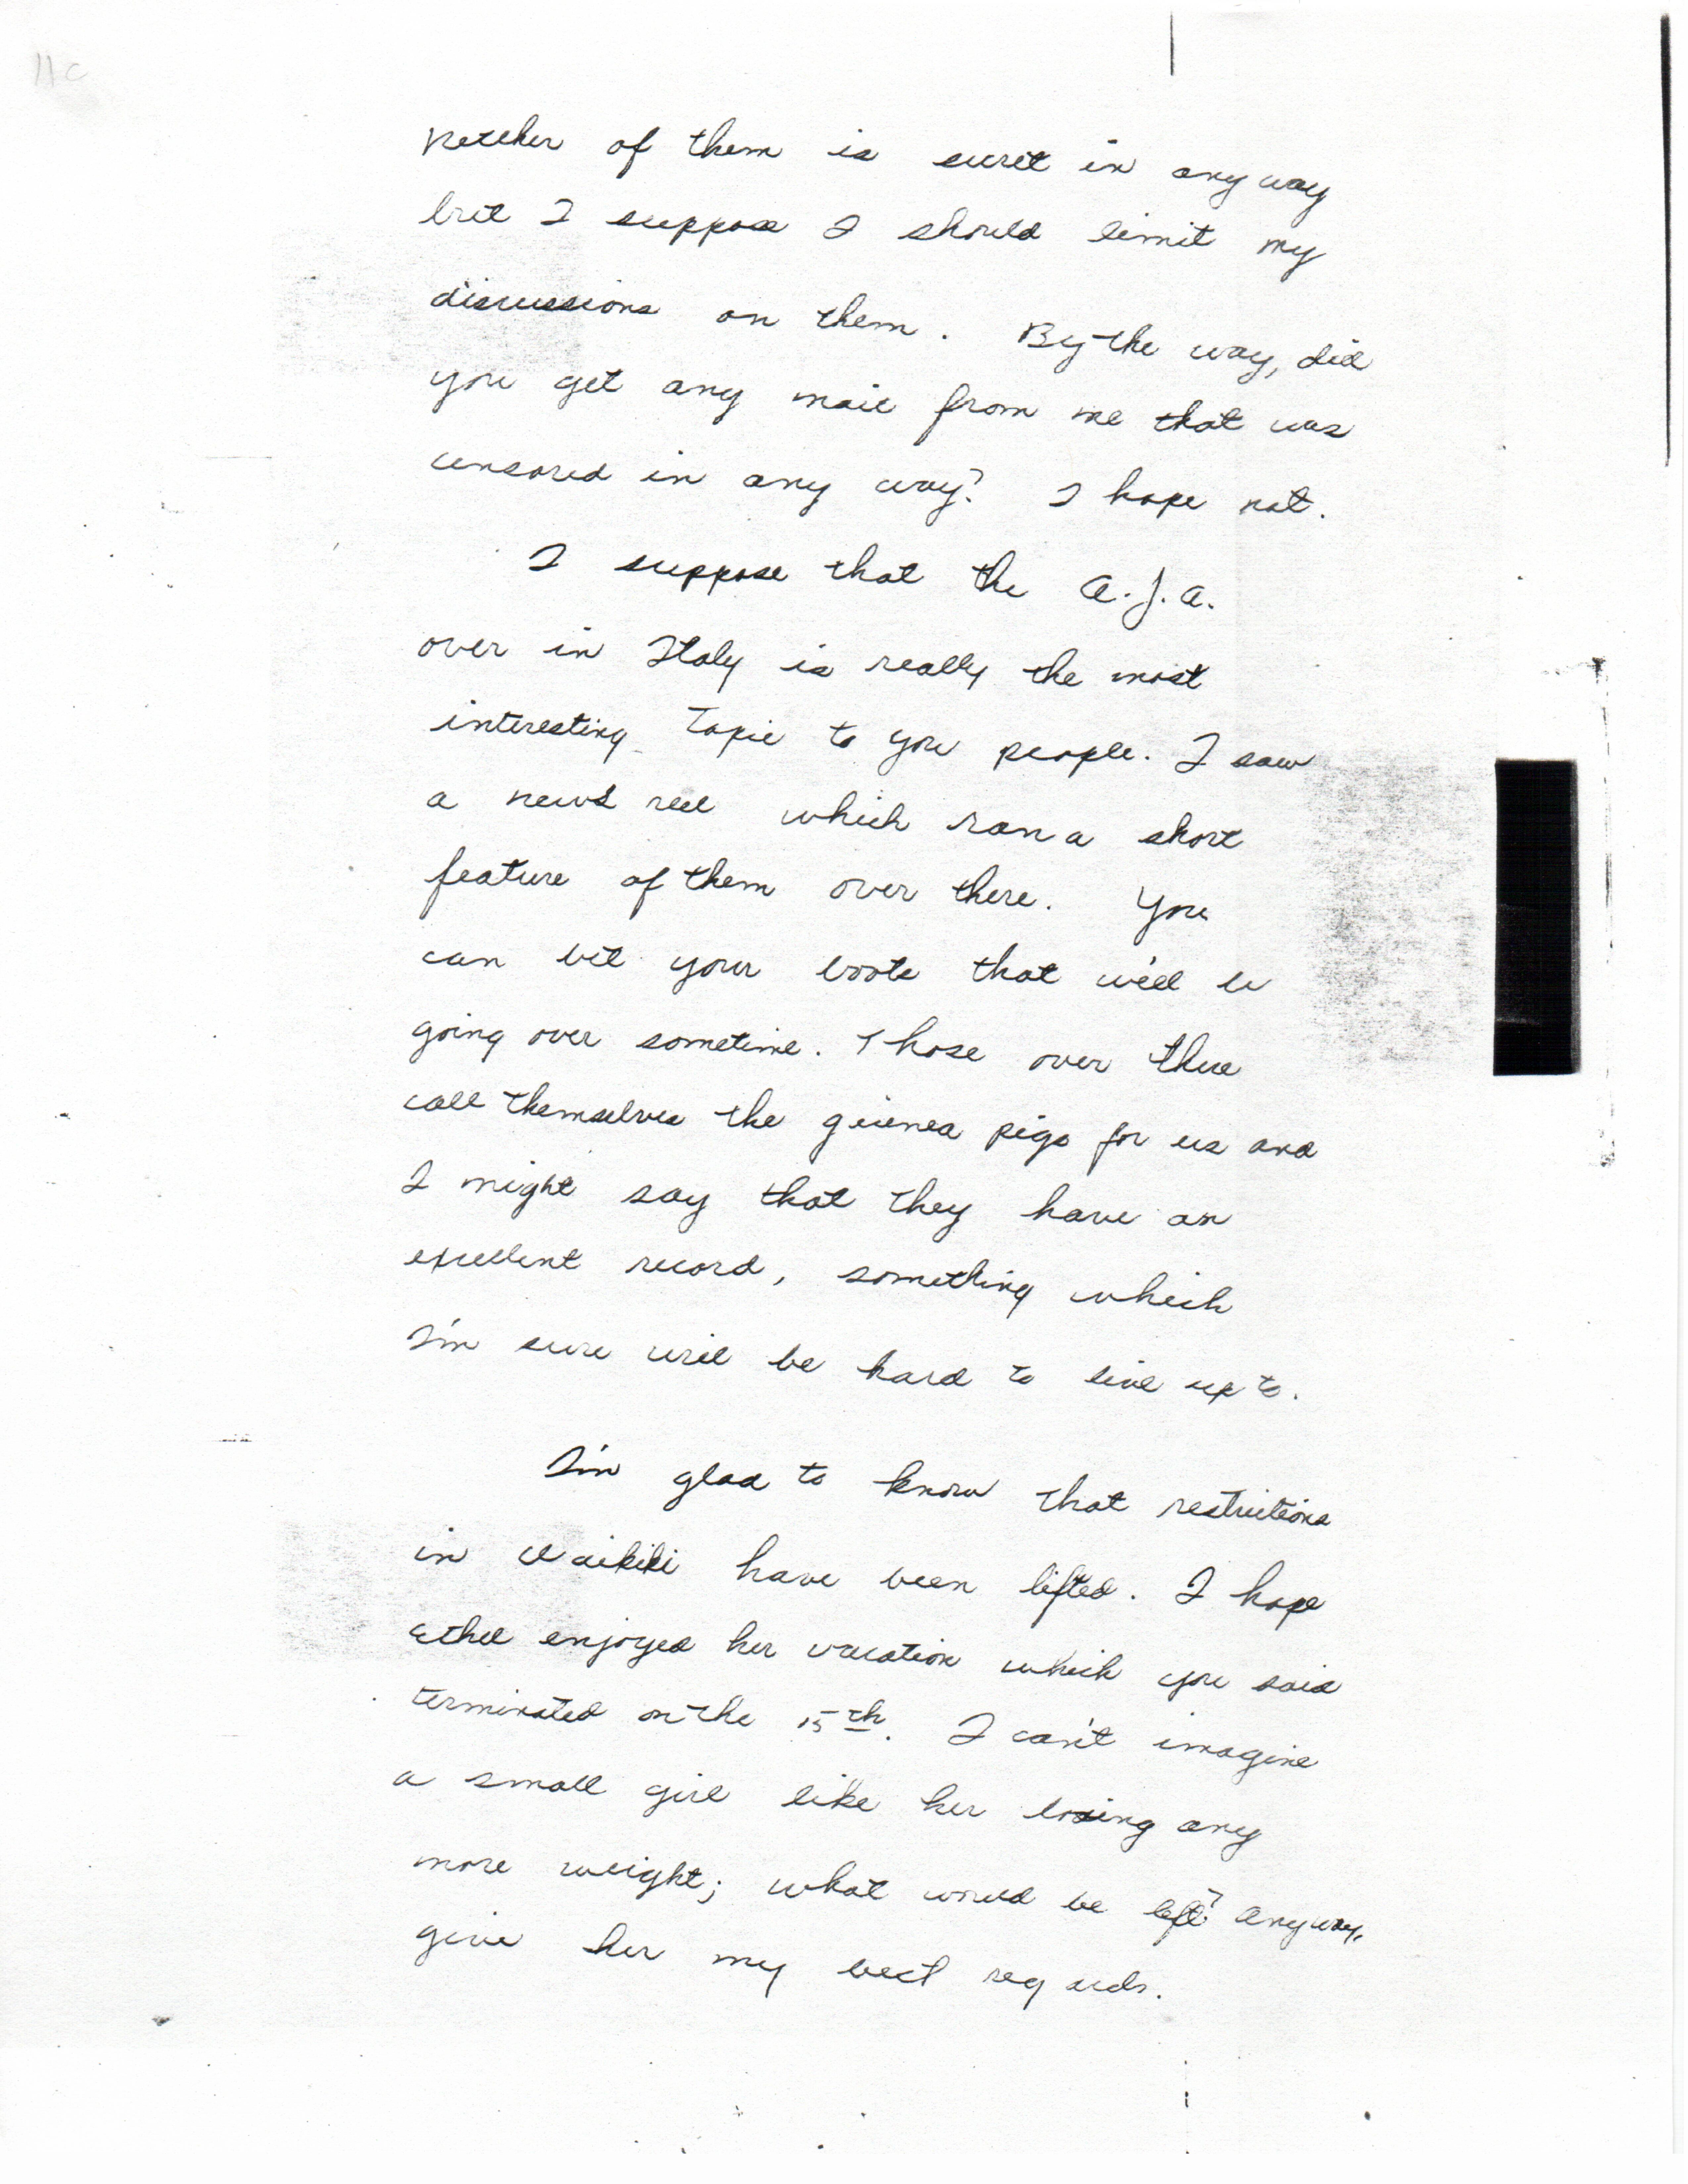 11c
Neither of them is secret in anyway
but I suppose I should limit my
discussions on them. By the way, did
you get any mail from me that was
censored in any way? I hope not.
I suppose that the A.J.A.
over in Italy is really the most
interesting topic to you people. I saw
a news reel which ran a short
feature of them over there. You
can bet your boots that we'll be
going over sometime. Those over there
call themselves the guinea pigs for us and
I might say that they have an
excellent record, something which
I'm sure will be hard to live up to.
I'm glad to know that restrictions
in Waikiki have been lifted. I hope
Ethel enjoyed her vacation which you said
terminated on the 15th. I can't imagine
a small girl like her losing any
more weight; what would be left? Anyway,
give her my best regards.